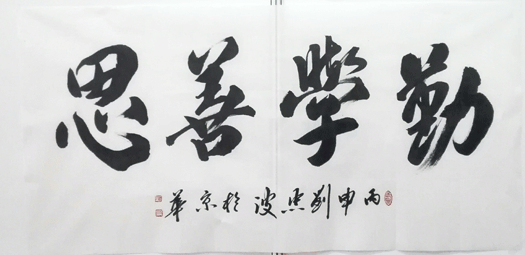 勤學善思
丙申劉杰波於京華